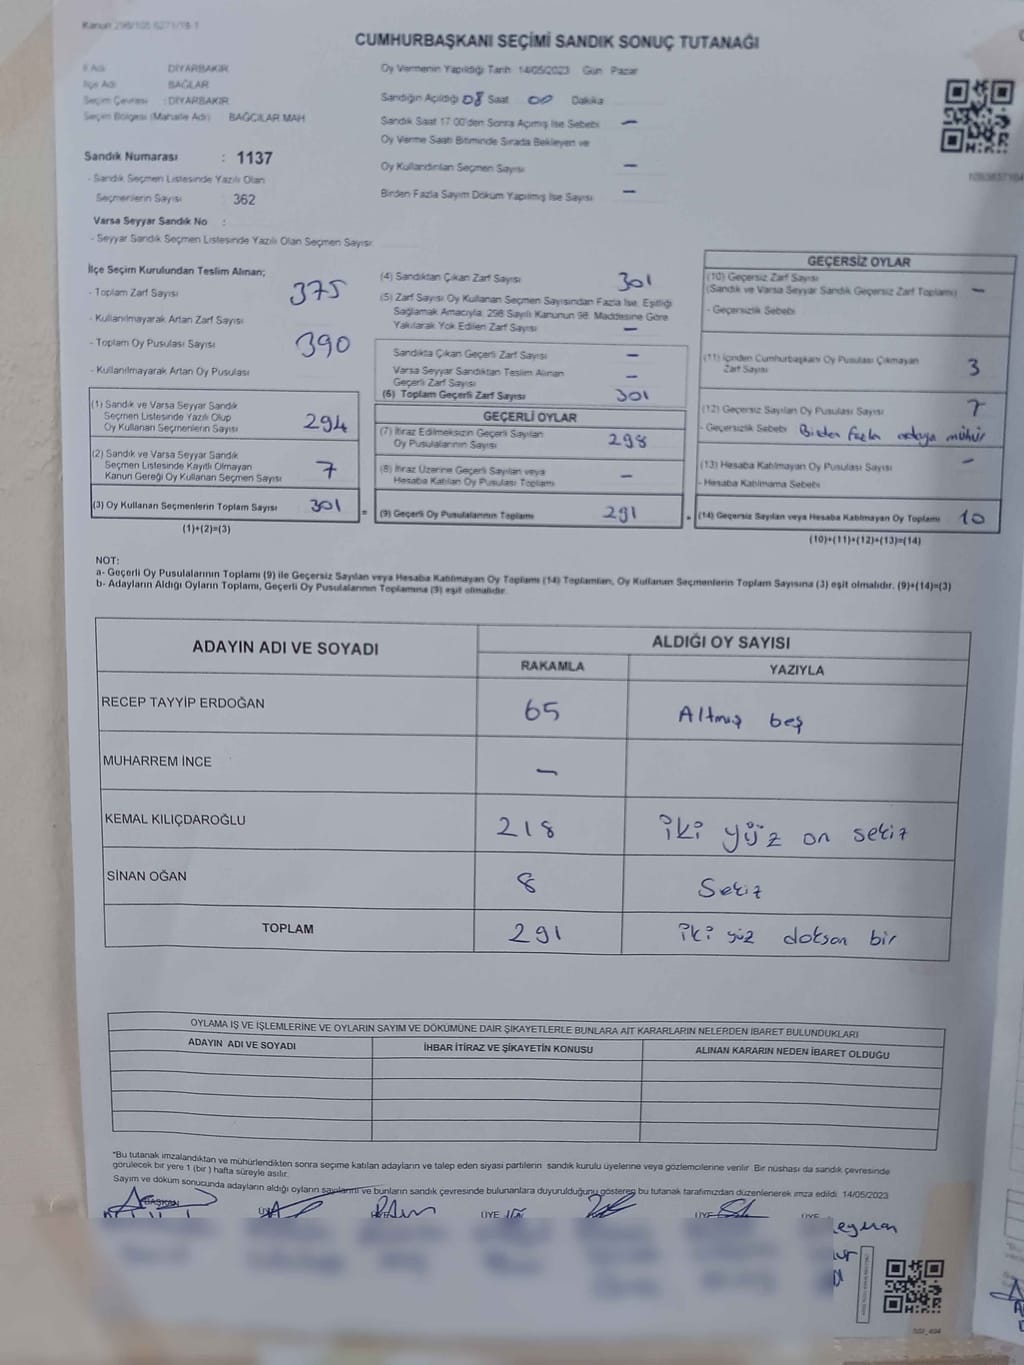 Kanun 298/105 6271/18-1
CUMHURBAŞKANI SEÇİMİ SANDIK SONUÇ TUTANAĞI
İl Adı DİYARBAKIR
İlçe Adı BAĞLAR
Seçim Çevresi : DİYARBAKIR
Seçim Bölgesi (Mahalle Adı) BAĞCILAR MAH
Sandık Numarası : 1137
- Sandık Seçmen Listesinde Yazılı Olan
Seçmenlerin Sayısı 362
Varsa Seyyar Sandık No :
- Seyyar Sandık Seçmen Listesinde Yazılı Olan Seçmen Sayısı:
Oy Vermenin Yapıldığı Tarih: 14/05/2023 Gün: Pazar
Sandığın Açıldığı 08 Saat 00 Dakika
Sandık Saat 17:00'den Sonra Açılmış İse Sebebi —
Oy Verme Saati Bitiminde Sırada Bekleyen ve
Oy Kullandırılan Seçmen Sayısı —
Birden Fazla Sayım Döküm Yapılmış İse Sayısı —
İlçe Seçim Kurulundan Teslim Alınan;
- Toplam Zarf Sayısı 375
- Kullanılmayarak Artan Zarf Sayısı
- Toplam Oy Pusulası Sayısı 390
- Kullanılmayarak Artan Oy Pusulası
(1) Sandık ve Varsa Seyyar Sandık
Seçmen Listesinde Yazılı Olup
Oy Kullanan Seçmenlerin Sayısı 294
(2) Sandık ve Varsa Seyyar Sandık
Seçmen Listesinde Kayıtlı Olmayan
Kanun Gereği Oy Kullanan Seçmen Sayısı 7
(3) Oy Kullanan Seçmenlerin Toplam Sayısı 301
(1)+(2)=(3)
(4) Sandıktan Çıkan Zarf Sayısı 301
(5) Zarf Sayısı Oy Kullanan Seçmen Sayısından Fazla İse, Eşitliği
Sağlamak Amacıyla, 298 Sayılı Kanunun 98. Maddesine Göre
Yakılarak Yok Edilen Zarf Sayısı —
Sandıkta Çıkan Geçerli Zarf Sayısı —
Varsa Seyyar Sandıktan Teslim Alınan
Geçerli Zarf Sayısı —
(6) Toplam Geçerli Zarf Sayısı 301
GEÇERLİ OYLAR
(7) İtiraz Edilmeksizin Geçerli Sayılan
Oy Pusulalarının Sayısı 298
(8) İtiraz Üzerine Geçerli Sayılan veya
Hesaba Katılan Oy Pusulası Toplamı —
= (9) Geçerli Oy Pusulalarının Toplamı 291
GEÇERSİZ OYLAR
(10) Geçersiz Zarf Sayısı
(Sandık ve Varsa Seyyar Sandık Geçersiz Zarf Toplamı) —
- Geçersizlik Sebebi
(11) İçinden Cumhurbaşkanı Oy Pusulası Çıkmayan
Zarf Sayısı 3
(12) Geçersiz Sayılan Oy Pusulası Sayısı 7
- Geçersizlik Sebebi Birden fazla adaya mühür
(13) Hesaba Katılmayan Oy Pusulası Sayısı —
- Hesaba Katılmama Sebebi
+ (14) Geçersiz Sayılan veya Hesaba Katılmayan Oy Toplamı 10
(10)+(11)+(12)+(13)=(14)
NOT:
a- Geçerli Oy Pusulalarının Toplamı (9) ile Geçersiz Sayılan veya Hesaba Katılmayan Oy Toplamı (14) Toplamları, Oy Kullanan Seçmenlerin Toplam Sayısına (3) eşit olmalıdır. (9)+(14)=(3)
b- Adayların Aldığı Oyların Toplamı, Geçerli Oy Pusulalarının Toplamına (9) eşit olmalıdır.
ADAYIN ADI VE SOYADI ALDIĞI OY SAYISI
RAKAMLA YAZIYLA
RECEP TAYYİP ERDOĞAN 65 Altmış beş
MUHARREM İNCE —
KEMAL KILIÇDAROĞLU 218 iki yüz on sekiz
SİNAN OĞAN 8 Sekiz
TOPLAM 291 iki yüz doksan bir
OYLAMA İŞ VE İŞLEMLERİNE VE OYLARIN SAYIM VE DÖKÜMÜNE DAİR ŞİKAYETLERLE BUNLARA AİT KARARLARIN NELERDEN İBARET BULUNDUKLARI
ADAYIN ADI VE SOYADI İHBAR İTİRAZ VE ŞİKAYETİN KONUSU ALINAN KARARIN NEDEN İBARET OLDUĞU
*Bu tutanak imzalandıktan ve mühürlendikten sonra seçime katılan adayların ve talep eden siyasi partilerin sandık kurulu üyelerine veya gözlemcilerine verilir. Bir nüshası da sandık çevresinde
görülecek bir yere 1 (bir) hafta süreyle asılır.
Sayım ve döküm sonucunda adayların aldığı oyların sayılarını ve bunların sandık çevresinde bulunanlara duyurulduğunu gösteren bu tutanak tarafımızdan düzenlenerek imza edildi. 14/05/2023
BAŞKAN ÜYE ÜYE ÜYE ÜYE